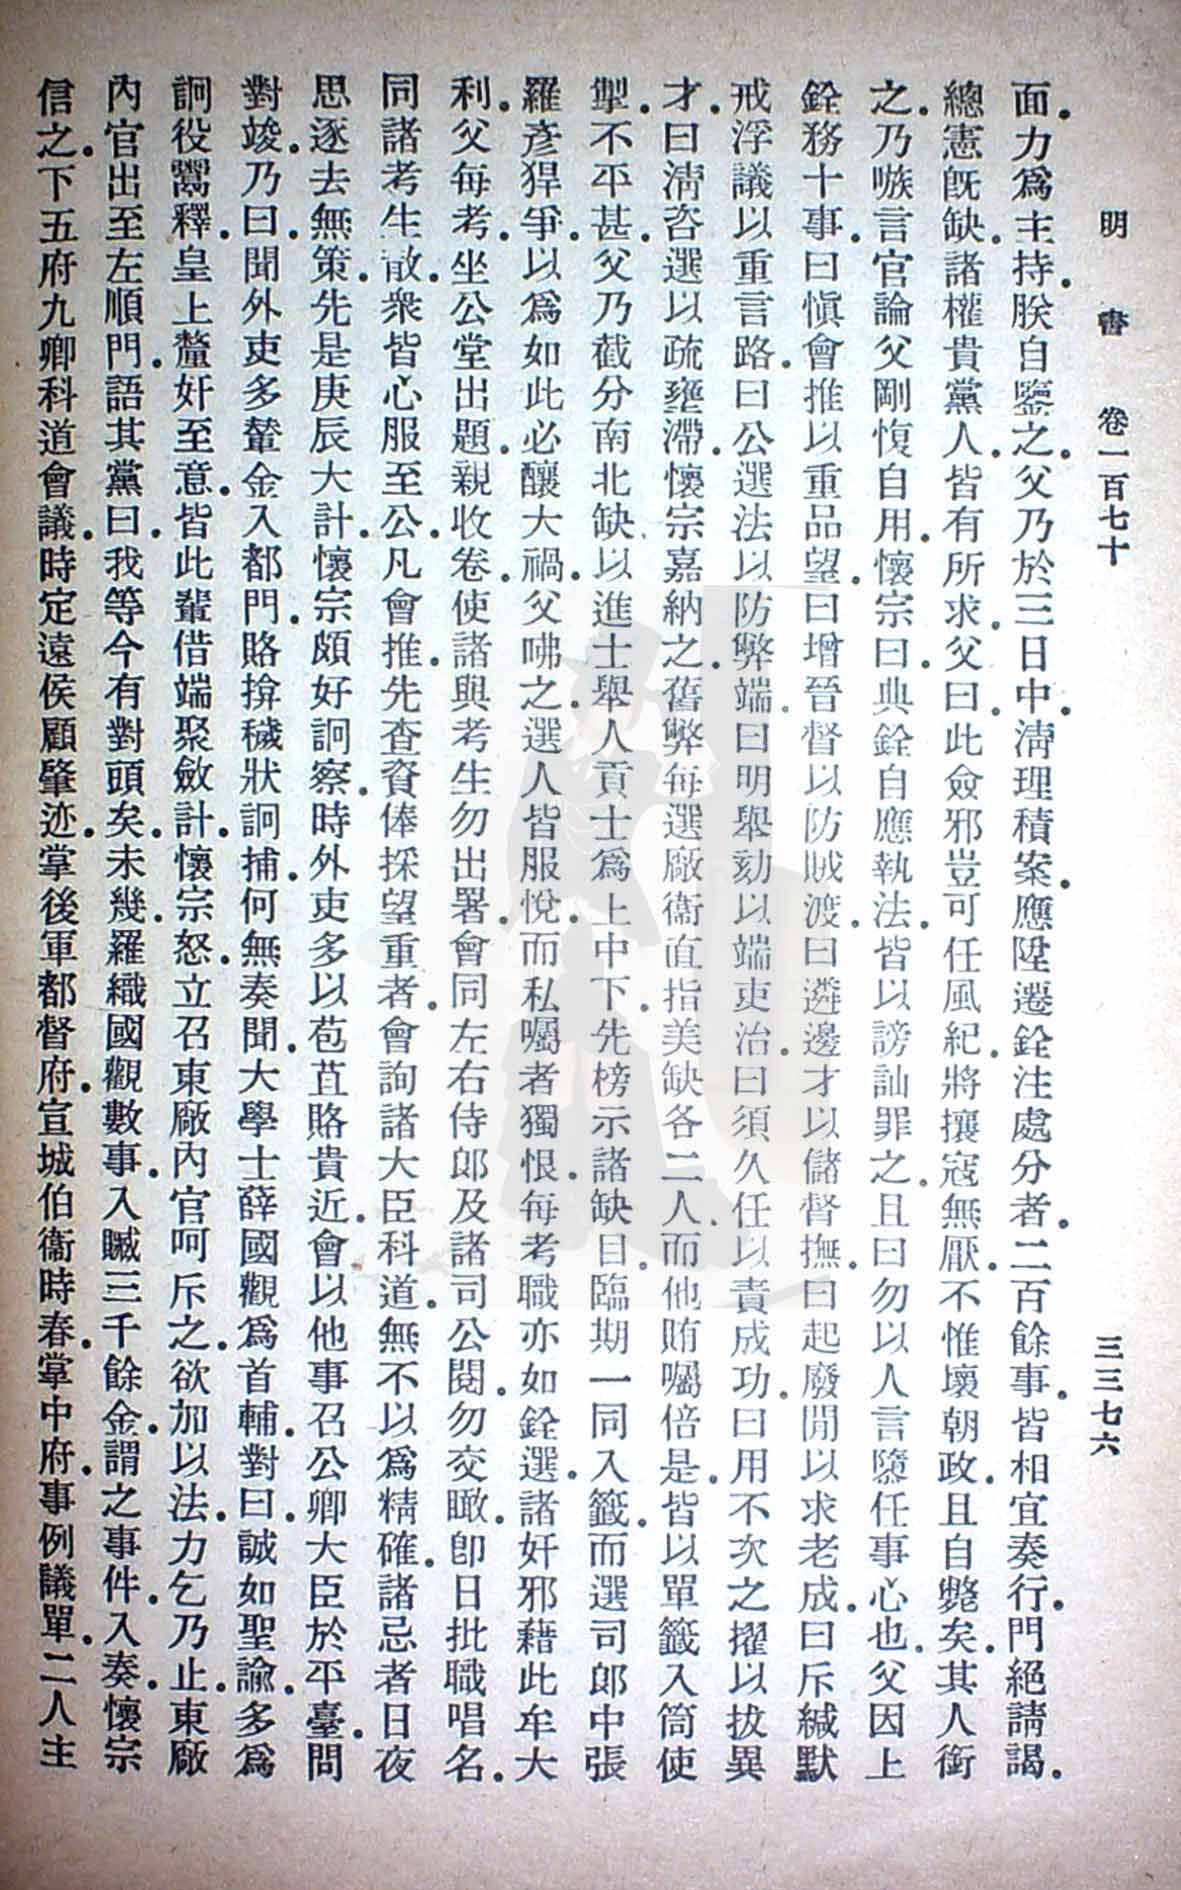 明書 卷一百七十 三三七六
面.力爲主持.朕自鑒之.父乃於三日中.淸理積案.應陞遷銓注處分者.二百餘事.皆相宜奏行.門絕請謁.
總憲旣缺.諸權貴黨人.皆有所求.父曰.此僉邪豈可任風紀.將攘寇無厭.不惟壞朝政.且自斃矣.其人銜
之.乃嗾言官論父剛愎自用.懷宗曰.典銓自應執法.皆以謗訕罪之.且曰勿以人言隳任事心也.父因上
銓務十事.曰愼會推以重品望.曰增晉督以防賊渡.曰遴邊才以儲督撫.曰起廢閒以求老成.曰斥緘默
戒浮議以重言路.曰公選法以防弊端.曰明舉劾以端吏治.曰須久任以責成功.曰用不次之擢以拔異
才.曰淸咨選以疏壅滯.懷宗嘉納之.舊弊每選廠衞直指美缺各二人.而他賄囑倍是.皆以單籤入筒使
掣.不平甚.父乃截分南北缺.以進士舉人貢士爲上中下.先榜示諸缺目.臨期一同入籤.而選司郎中張
羅彥猂爭.以爲如此必釀大禍.父咈之.選人皆服悅.而私囑者獨恨.每考職亦如銓選.諸奸邪藉此牟大
利.父每考.坐公堂出題.親收卷.使諸與考生勿出署.會同左右侍郎及諸司公閱.勿交瞰.卽日批職唱名.
同諸考生散.衆皆心服至公.凡會推.先查資俸採望重者.會詢諸大臣科道.無不以爲精確.諸忌者日夜
思逐去無策.先是庚辰大計.懷宗頗好詗察.時外吏多以苞苴賂貴近.會以他事召公卿大臣於平臺.問
對竣.乃曰.聞外吏多輦金入都門.賂揜穢狀.詗捕.何無奏聞.大學士薛國觀爲首輔.對曰.誠如聖諭.多爲
詗役鬻釋.皇上釐奸至意.皆此輩借端聚斂計.懷宗怒.立召東廠內官呵斥之.欲加以法.力乞乃止.東廠
內官出至左順門.語其黨曰.我等今有對頭矣.未幾.羅織國觀數事.入贓三千餘金.謂之事件.入奏.懷宗
信之.下五府九卿科道會議.時定遠侯顧肇迹.掌後軍都督府.宣城伯衞時春.掌中府.事例議單.二人主